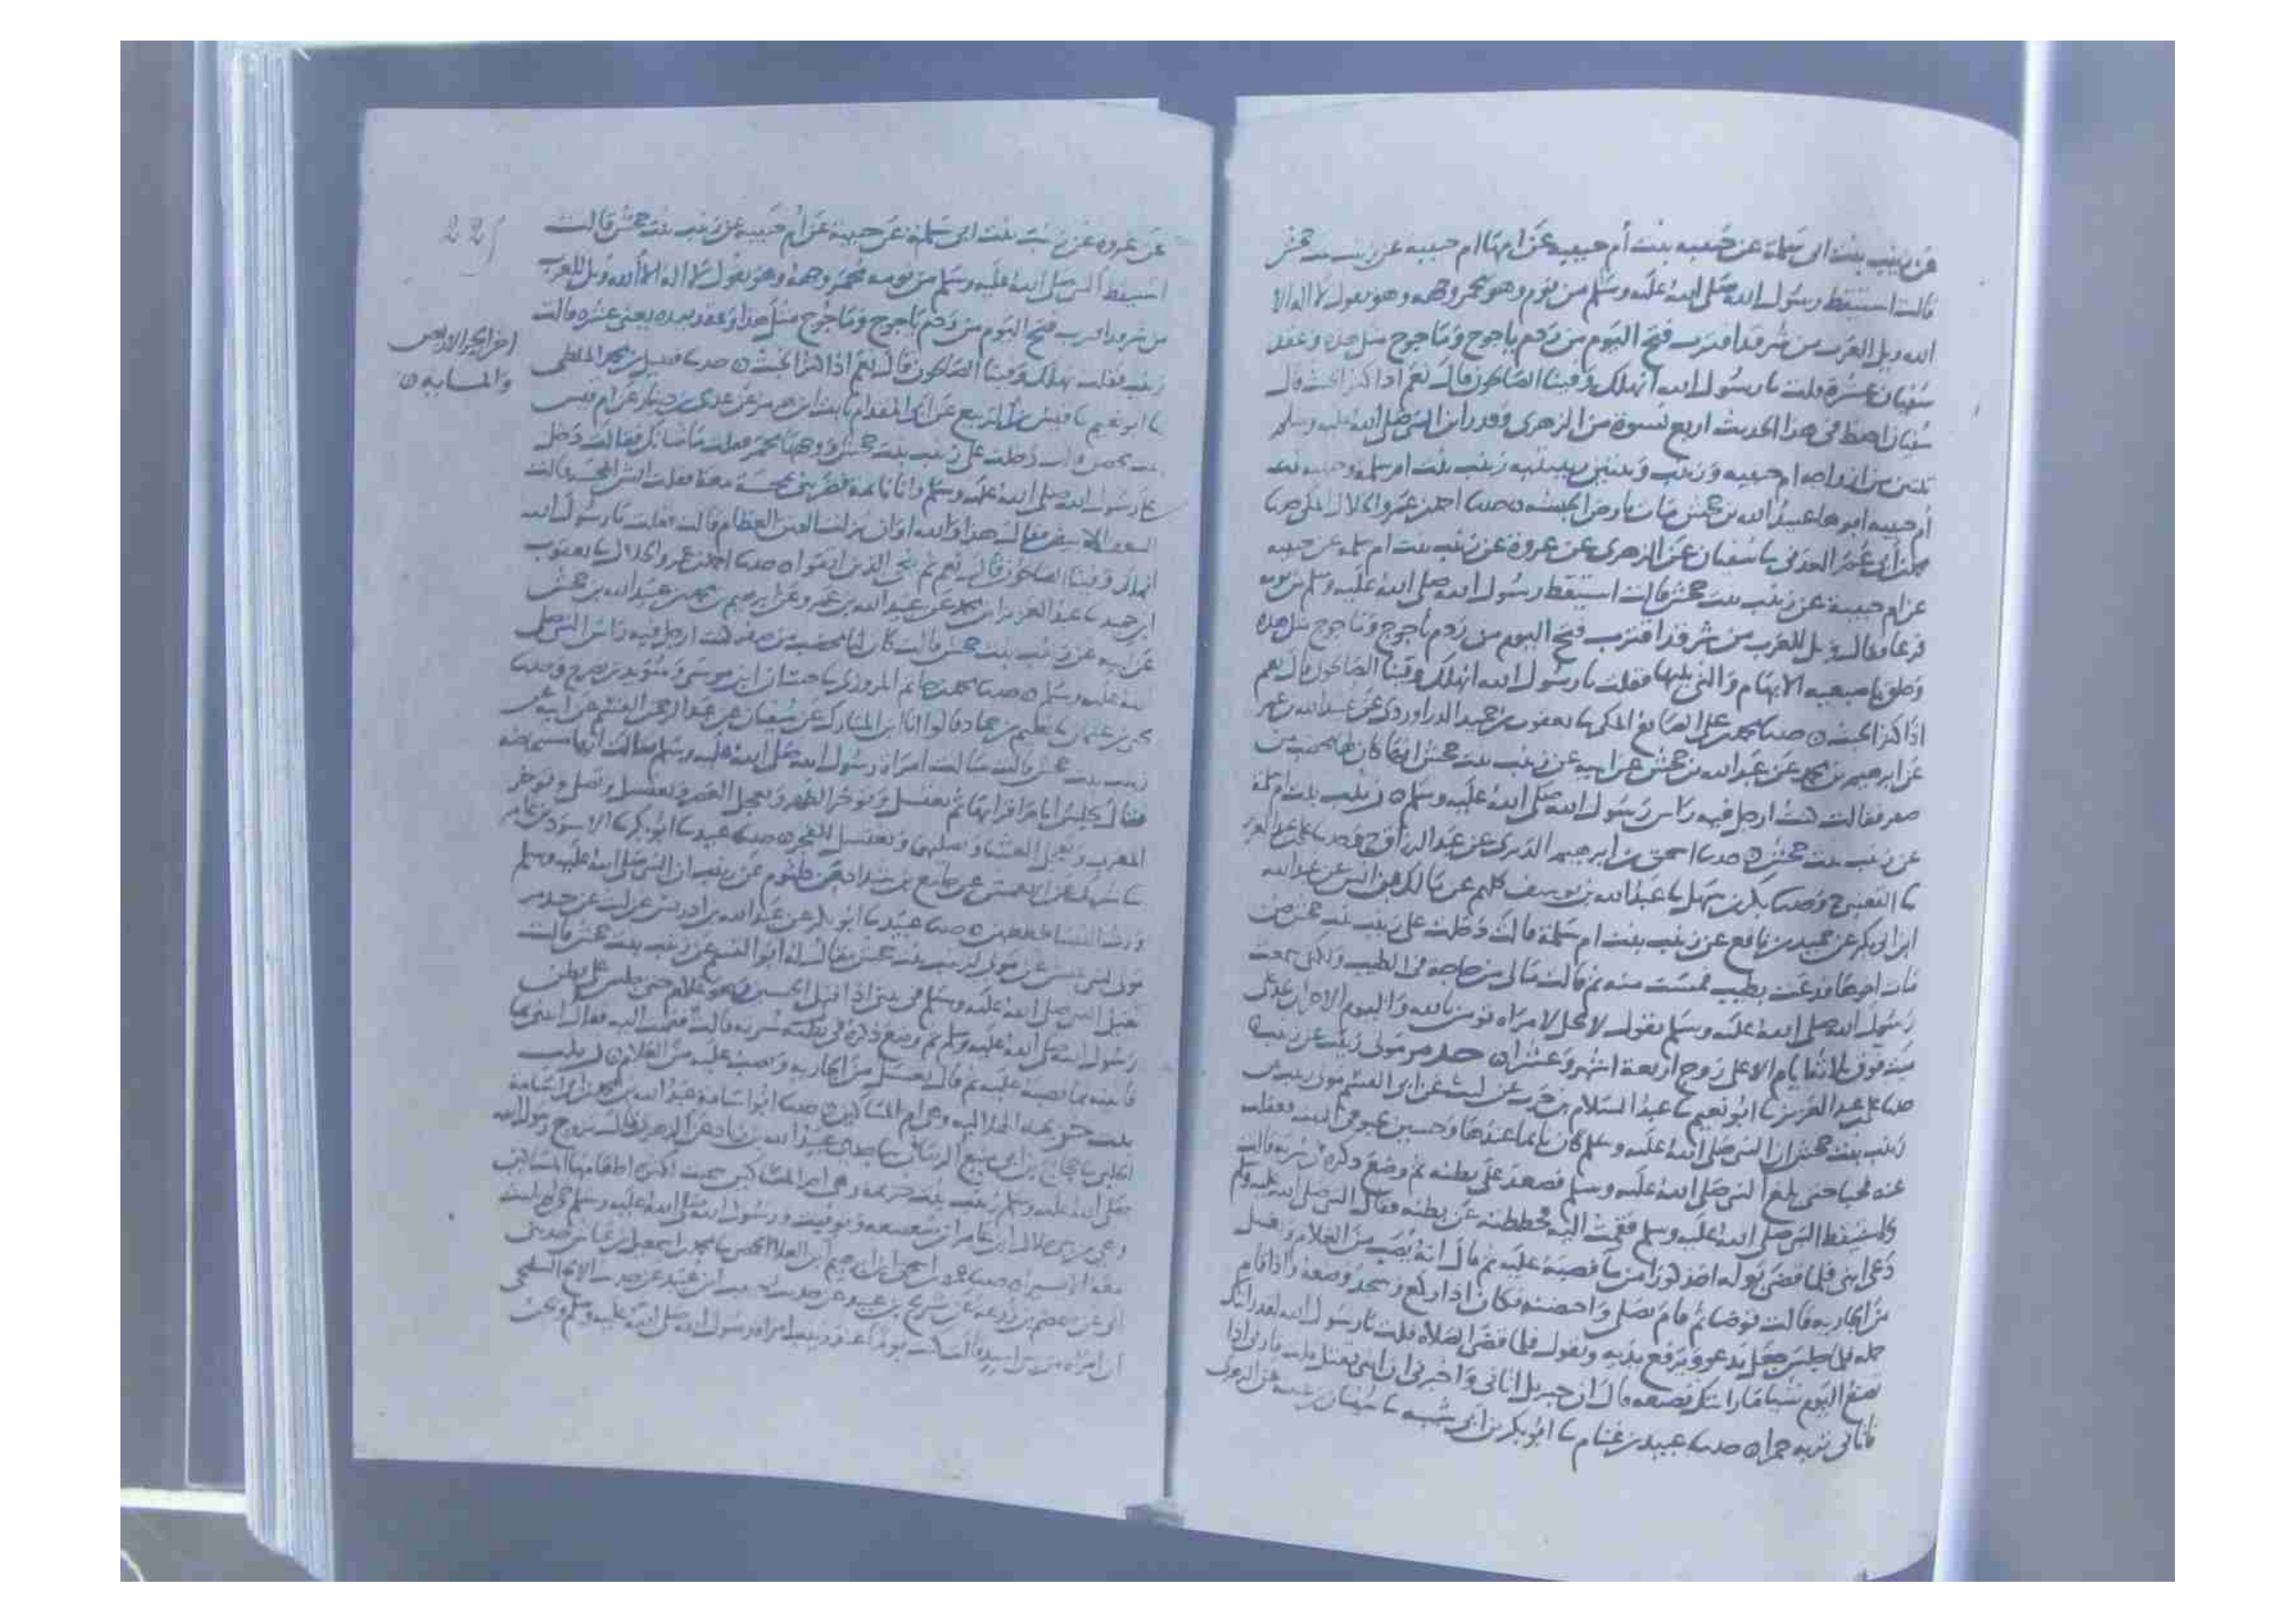 عن زينب بنت ابى سلمة عن حبيبه بنت أم حبيبه عن امها ام حبيبه عن زينب بنت جحش
قالت استيقظ رسول الله صلى الله عليه وسلم من نوم وهو محمر وجهه وهو يقول لا اله الا
الله ويل للعرب من شر قد اقترب فتح اليوم من ردم ياجوج وماجوج مثل هذه وعقد
سفيان عشرة قلت يا رسول الله انهلك وفينا الصالحون قال نعم اذا كثر الخبث قال
سفيان احفظ فى هذا الحديث اربع نسوة من الزهرى وقد راين النبي صلى الله عليه وسلم
ثنتين من ازواجه ام حبيبه وزينب وثنتين ربيبتيه زينب بنت ام سلمة وحبيبه بنت
أم حبيبه ابوها عبيد الله بن جحش مات بارض الحبشه حدثنا احمد بن عمرو الخلال المكى حدثنا
محمد بن أبى عمر العدنى نا سفيان عن الزهرى عن عروة عن زينب بنت ام سلمه عن حبيبه
عن ام حبيبة عن زينب بنت جحش قالت استيقظ رسول الله صلى الله عليه وسلم من نومه
فزعا وقال ويل للعرب من شر قد اقترب فتح اليوم من ردم ياجوج وماجوج مثل هذه
وحلق باصبعيه الابهام والتى يليها فقلت يا رسول الله انهلك وفينا الصالحون قال نعم
اذا كثر الخبث حدثنا محمد بن على الصائغ المكى نا يعقوب بن حميد الدراوردى عن عبيد الله بن عمر
عن ابرهيم بن محمد عن عبد الله بن جحش عن ابيه عن زينب بنت جحش انها كان لها مخضب من
صفر فقالت كنت ارجل فيه راس رسول الله صلى الله عليه وسلم زينب بنت ام سلمة
عن زينب بنت جحش حدثنا اسحق بن ابرهيم الدبرى عن عبد الرزاق ح وحدثنا على بن عبد العزيز
نا القعنبى ح وحدثنا بكر بن سهل نا عبد الله بن يوسف كلهم عن مالك بن انس عن عبد الله
ابن ابى بكر عن حميد بن نافع عن زينب بنت ام سلمة قالت دخلت على زينب بنت جحش حين
مات اخوها فدعت بطيب فمست منه ثم قالت مالى من حاجة فى الطيب ولكنى سمعت
رسول الله صلى الله عليه وسلم يقول لا يحل لامراه تومن بالله واليوم الاخر ان تحد على
ميت فوق ثلاثة ايام الا على زوج اربعة اشهر وعشرا حدمر مولى زينب عن زينب
حدثنا على بن عبد العزيز نا ابو نعيم نا عبد السلام بن حرب عن ليث عن ابى القسم مولى زينب
زينب بنت جحش ان النبى صلى الله عليه وسلم كان نائما عندها وحسين يحبو فى البيت فغفلت
عنه فحبا حتى بلغ النبى صلى الله عليه وسلم فصعد على بطنه ثم وضع ذكره فى سرته قالت
واستيقظ النبى صلى الله عليه وسلم فقمت اليه فحططته عن بطنه فقال النبى صلى الله عليه وسلم
دعى ابنى فلما قضى بوله اخذ كوزا من ما فصبه عليه ثم قال انه يصب من الغلام ويغسل
من الجاريه قالت توضا ثم قام يصلى واحتضنه فكان اذا ركع وسجد وضعه واذا قام
حمله فلما جلس جعل يدعو ويرفع يديه ويقول فلما قضى الصلاه قلت يا رسول الله لقد رايتك
تصنع اليوم شيا ما رايتك تصنعه قال ان جبريل اتانى واخبرنى ان ابنى يقتل قلت فارنى اذا
فاتانى تربه حمرا حدثنا عبيد بن غنام نا ابو بكر بن ابى شيبه نا سفيان بن عيينه عن الزهرى
عن عروه عن زينب بنت ابى سلمة عن حبيبة عن ام حبيبه عن زينب بنت جحش قالت
استيقظ النبى صلى الله عليه وسلم من نومه محمر وجهه وهو يقول لا اله الا الله ويل للعرب
من شر قد اقترب فتح اليوم من ردم ياجوج وماجوج مثل هذا وعقد بيده يعنى عشره قالت
زينب فقلت نهلك وفينا الصالحون قال نعم اذا كثر الخبث حدثنا فضيل بن محمد الملطى
نا ابو نعيم نا قيس بن الربيع عن ابى المقدام ثابت ابن هرمز عن عدى بن دينار عن ام قيس
بنت محصن قالت دخلت على زينب بنت جحش ووجهها محمر فقلت ما شانك فقالت دخل
على رسول الله صلى الله عليه وسلم وانا نائمة
ابى حميد نا عبد العزيز بن محمد عن عبيد الله بن عمر وعن ابرهيم بن محمد بن عبد الله بن جحش
عن ابيه عن زينب بنت جحش قالت كان لنا مخضب من صفر كنت ارجل فيه راس النبى صلى
الله عليه وسلم حدثنا محمد بن حاتم المروزى نا حبان ابن موسى وسويد بن نصر ح وحدثنا
يحيى بن عثمان نا نعيم بن حماد قالوا انا ابن المبارك عن سفيان عن عبد الرحمن بن القسم عن ابيه عن
زينب بنت جحش قالت سالت امراة رسول الله صلى الله عليه وسلم فقالت انها مستحاضه
فقال تجلس ايام اقرائها ثم تغتسل وتوخر الظهر وتعجل العصر وتغتسل وتصلى وتوخر
المغرب وتعجل العشا وتصليهما وتغتسل للفجر حدثنا عبيد نا ابو بكر نا الاسود بن عامر
نا شريك عن الاعمش عن جامع بن شداد عن كلثوم عن زينب ان النبى صلى الله عليه وسلم
ورث النسا خططهن حدثنا عبيد نا ابو بكر عن عبد الله بن ادريس عن ليث عن حدمر
مولى لبنى عبس عن مولى لزينب بنت جحش يقال له ابو القسم عن زينب بنت جحش قالت
تقيل النبى صلى الله عليه وسلم فى بيتى اذا اقبل الحسين وهو غلام حتى جلس على بطن
رسول الله صلى الله عليه وسلم ثم وضع ذكره فى سرته قالت فقمت اليه فقال ائتنى بما
فاتيته بما فصبه عليه ثم قال يغسل من الجاريه ويصب عليه من الغلام زينب
بنت خزيمه الهلاليه وهى ام المساكين حدثنا ابو اسامة عبد الله بن محمد بن ابى اسامة
الحلبى نا حجاج بن ابى منيع الرصافى نا جدى عبيد الله بن زياد عن الزهرى قال تزوج رسول الله
صلى الله عليه وسلم زينب بنت خزيمه وهى ام المساكين سميت لكثرة اطعامها المساكين
وهى من بنى هلال ابن عامر ابن صعصعه وتوفيت ورسول الله صلى الله عليه وسلم حى لم تلبث
معه الا يسيرا حدثنا عمرو بن اسحق ابن ابرهيم ابن العلا الحمصى نا محمد بن اسمعيل بن عياش حدثنى
ابى عن ضمضم بن زرعه عن شريح بن عبيد
ان امراه من بنى اسد قالت كنت يوما عند زينب امراه رسول الله صلى الله عليه وسلم ونحن
225
اخر الجزو الاربعين
والمايه